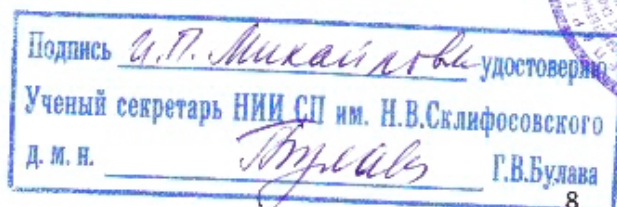 Подпись И.П. Михайлова удостоверяю
Ученый секретарь НИИ СП им. Н.В.Склифосовского
д. м. н. Булава Г.В.Булава
8